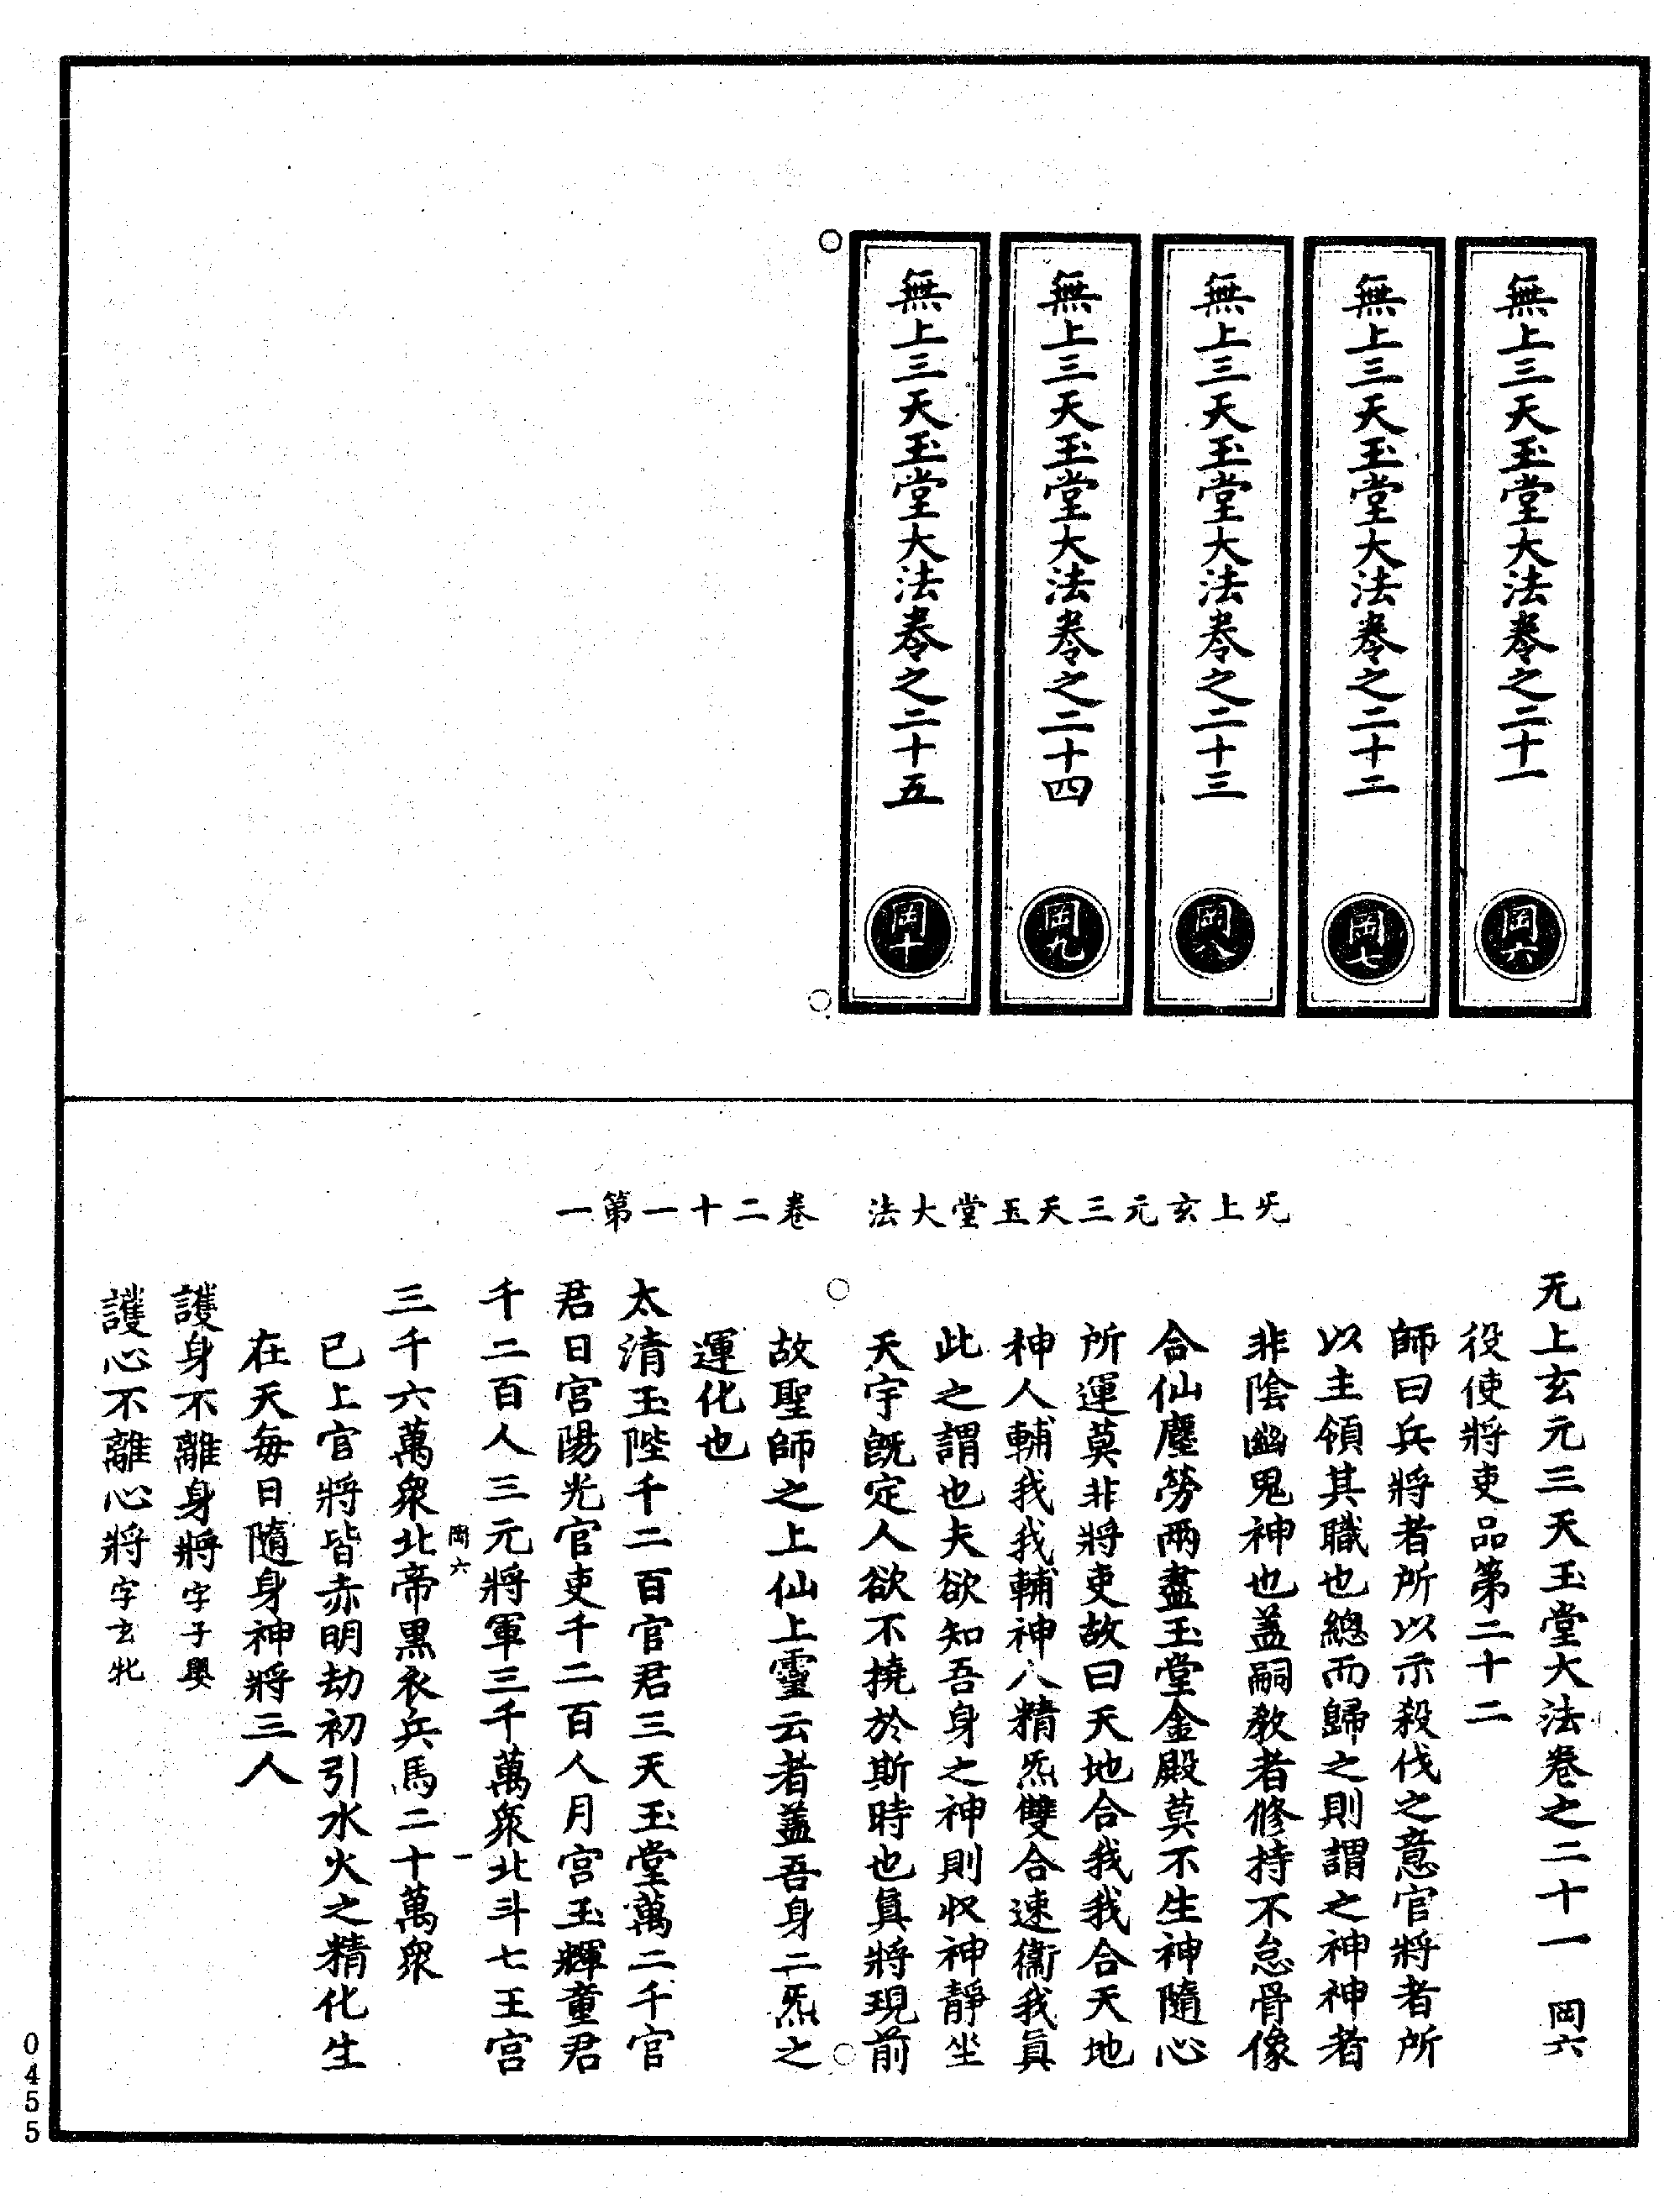 無上三天玉堂大法卷之二十一 岡六
無上三天玉堂大法卷之二十二 岡七
無上三天玉堂大法卷之二十三 岡八
無上三天玉堂大法卷之二十四 岡九
無上三天玉堂大法卷之二十五 岡十
无上玄元三天玉堂大法 卷二十一第一
无上玄元三天玉堂大法卷之二十一 岡六
役使將吏品第二十二
師曰兵將者所以示殺伐之意官將者所
以主領其職也總而歸之則謂之神神者
非陰幽鬼神也盖嗣教者修持不怠骨像
合仙塵勞兩盡玉堂金殿莫不生神隨心
所運莫非將吏故曰天地合我我合天地
神人輔我我輔神人精炁雙合速衞我真
此之謂也夫欲知吾身之神則收神靜坐
天宇旣定人欲不撓於斯時也真將現前
故聖師之上仙上靈云者盖吾身二炁之
運化也
太清玉陛千二百官君三天玉堂萬二千官
君日宮陽光官吏千二百人月宮玉輝童君
千二百人三元將軍三千萬衆北斗七王宮
岡六 一
三千六萬衆北帝黑衣兵馬二十萬衆
已上官將皆赤明劫初引水火之精化生
在天每日隨身神將三人
護身不離身將字子輿
護心不離心將字玄牝
0455